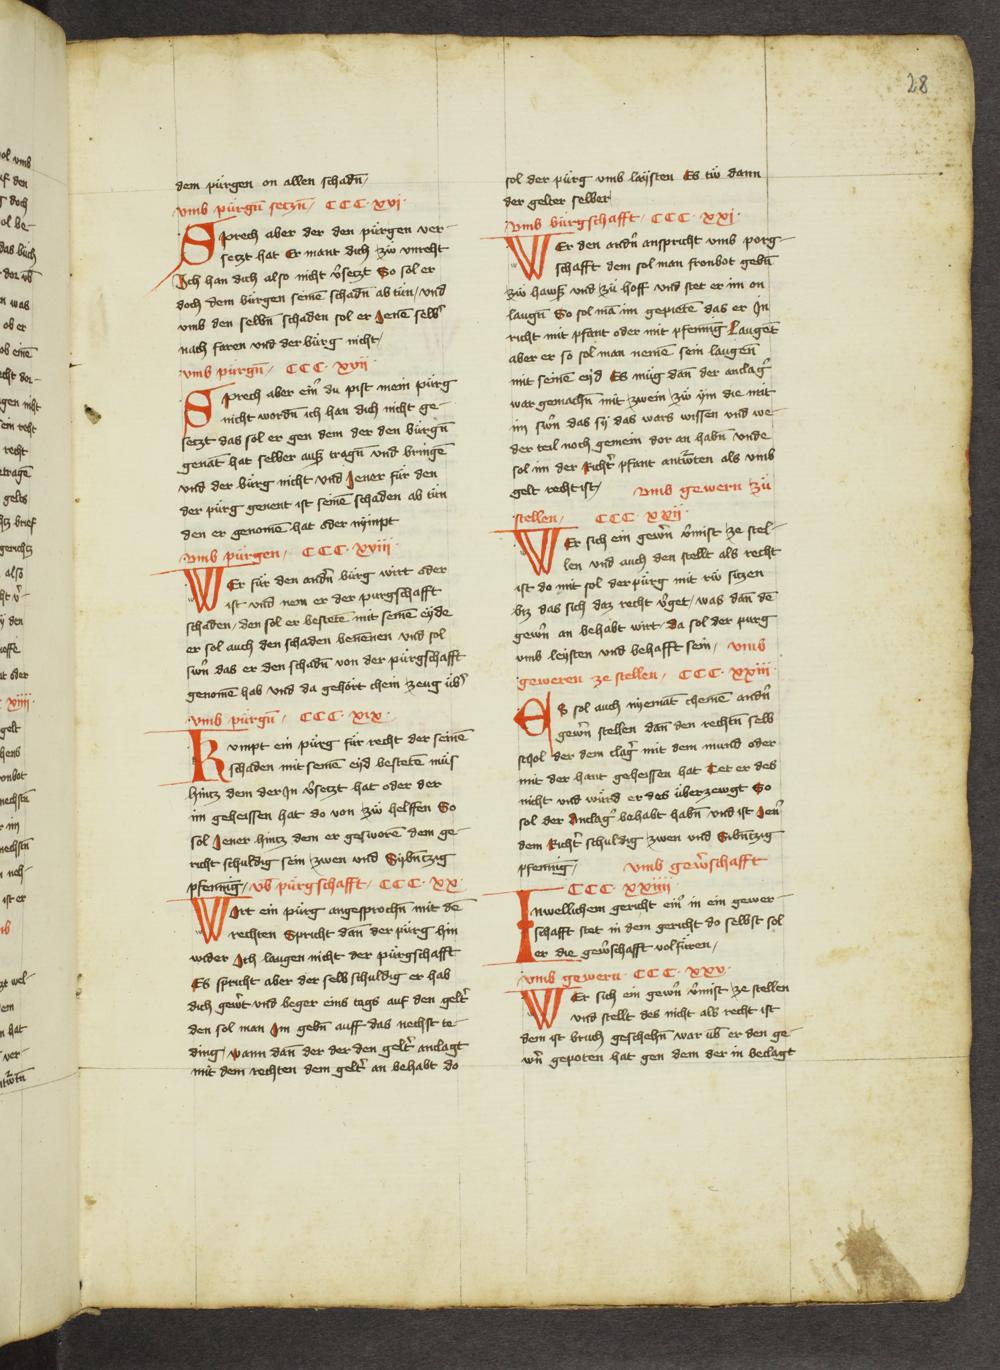 28
dem pürgen on allen schadn̄
vmb pürgn̄ seczn̄ CCC·xvi·
Sprech aber der den pürgen ver-
seczt hat Er mant dich zw̋ vnrecht
Ich han dich also nicht v̉seczt So sol er
doch dem bürgen seinē schadn̄ ab tün / vnd
vmb den selbn̄ schaden sol er Jenē selb̉
nach faren vnd der bürg nicht /
vmb pürgn̄ / CCC·xvii
Sprech aber ein̉ du pist mein pürg
nicht wordn̄ ich han dich nicht ge-
seczt das sol er gen dem der den bürgn̄
genāt hat selber auß tragn̄ vnd bringē
vnd der bürg nicht vnd Jener für den
der pürg genent ist seinē schaden ab tün
den er genomē hat oder nympt
vmb pürgen / CCC·xviii
WEr für den andn̄ bürg wirt oder
ist vnd nem er der purgschafft
schaden / den sol er bestetē mit seinē eyde
er sol auch den schaden benēnen vnd sol
sw̉n das er den schadn̄ von der pürgschafft
genomē hab vnd da gehört chein zeug üb̉
vmb pürgn̄ / CCC·xix·
Kvmpt ein pürg für recht der seinē
schaden mit seinē eyd bestetē müs
hincz dem der Jn v̉seczt hat oder der
im geheissen hat do von zw̋ helffen So
sol Jener hincz dem er gesworē dem ge-
richt schuldig sein zwen vnd Sybn̄tzig
pfennig / vb pürgschafft / CCC·xx·
WIrt ein pürg angesprochn̄ mit dē
rechten Spricht dan̄ der pürg hin
wider Ich laugen nicht der pürgschafft
Es spricht aber der selb schuldig er hab
dich gew̉t vnd beger eins tags auf den gelt̉
den sol man Jm gebn̄ auff das nechst te-
ding / wann dan̄ der der den gelt̉ anclagt
mit dem rechten dem gelt̉ an behabt do
sol der pürg vmb laysten Es tw̋ dann
der gelter selber
vmb bürgschafft / CCC·xxi·
WEr den andn̄ anspricht vmb porg-
schafft dem sol man fronbot gebn̄
zw̋ hawß vnd zü hoff vnd stet er im on
laugn̄ So sol mā im gepietē das er Jn
richt mit pfant oder mit pfennig Laugēt
aber er so sol man nemē sein laugen
mit seinē eyd Es müg dan̄ der anclag̉
war gemachn̄ mit zwein zw̋ ym die mit
im sw̉n das sy das wars wissen vnd we-
der teil noch gemein dor an habn̄ vnde
sol im der Richt̉ pfant antw̉ten als vmb
gelt recht ist / vmb gewern zü
stellen / CCC·xxii·
WEr sich ein gew̉n v̉mist ze stel-
len vnd auch den stellt als recht
ist do mit sol der pürg mit rw̋ siczen
biz das sich daz recht v̉get / was dan̄ dē
gew̉n an behabt wirt / da sol der purg
vmb leysten vnd behafft sein / vmb
geweren ze stellen / CCC·xxiii·
Es sol auch nyemāt cheinē andn̄
gew̉n stellen dan̄ den rechtn̄ selb
schol der dem clag̉ mit dem mund oder
mit der hant geheissen hat Tet er des
nicht vnd würd er des überzewgt So
sol der Anclag̉ behabt habn̄ vnd ist Jen̉
dem Richt̉ schuldig zwen vnd Sibn̄tzig
pfennig / vmb gew̉schafft
CCC·xxiiii·
Inwellichem gericht ein̉ in ein gewer-
schafft stet in dem gericht do selbst sol
er die gew̉schafft volfüren /
vmb gewern CCC·xxv·
WEr sich ein gew̉n v̉mist ze stellen
vnd stellt des nicht als recht ist
dem ist bruch geschehn̄ war üb̉ er den ge-
w̉n gepoten hat gen dem der in beclagt